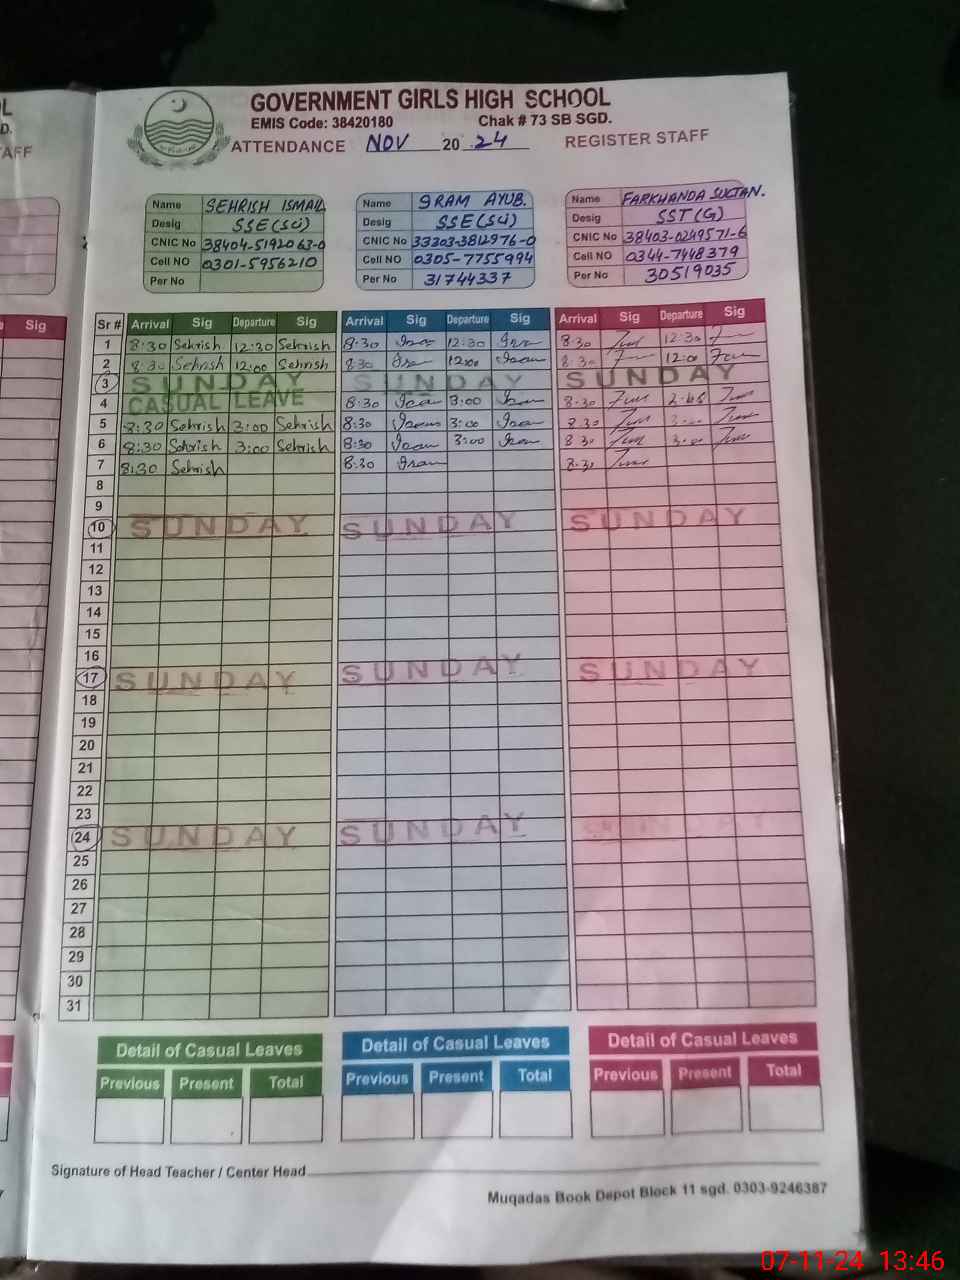 GOVERNMENT GIRLS HIGH SCHOOL
EMIS Code: 38420180 Chak # 73 SB SGD.
ATTENDANCE NOV 20 24 REGISTER STAFF
L
D.
AFF
Sig
Name SEHRISH ISMAIL
Desig SSE(Sci)
CNIC No 38404-5192063-0
Cell NO 0301-5956210
Per No
Name IRAM AYUB.
Desig SSE(Sci)
CNIC No 33303-3812976-0
Cell NO 0305-7755994
Per No 31744337
Name FARKHANDA SULTAN.
Desig SST(G)
CNIC No 38403-0249571-6
Cell NO 0344-7448379
Per No 30519035
Sr # Arrival Sig Departure Sig Arrival Sig Departure Sig Arrival Sig Departure Sig
1 8:30 Sehrish 12:30 Sehrish 8:30 12:30 8:30 12:30
2 8:30 Sehrish 12:00 Sehrish 8:30 12:00 8:30 12:00
3 SUNDAY SUNDAY SUNDAY
4 CASUAL LEAVE 8:30 3:00 8:30 2:45
5 8:30 Sehrish 3:00 Sehrish 8:30 3:00 8:30 3:00
6 8:30 Sehrish 3:00 Sehrish 8:30 3:00 8:30 3:00
7 8:30 Sehrish 8:30 Iram 8:30
8
9
10 SUNDAY SUNDAY SUNDAY
11
12
13
14
15
16
17 SUNDAY SUNDAY SUNDAY
18
19
20
21
22
23
24 SUNDAY SUNDAY SUNDAY
25
26
27
28
29
30
31
Detail of Casual Leaves Detail of Casual Leaves Detail of Casual Leaves
Previous Present Total Previous Present Total Previous Present Total
Signature of Head Teacher / Center Head
Muqadas Book Depot Block 11 sgd. 0303-9246387
07-11-24 13:46